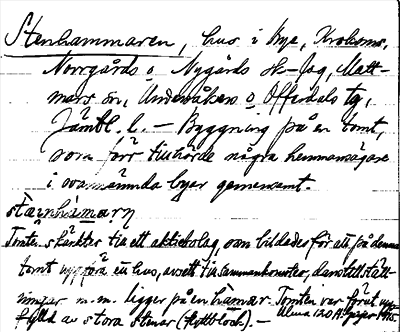 Stenhammaren, hus i Bye, Kroksmo,
Norrgårds o. Nygårds sk-lag, Matt-
mars sn, Undersåkers o. Offerdals tg,
Jämtl. l. — Byggning på en tomt,
som förr tillhörde några hemmansägare
i ovannämnda byar gemensamt.
Tomten skänktes till ett aktiebolag, som bildades för att på denna
tomt uppföra ett hus, avsett till sammankomster, danstillställ-
ningar m.m. ligger på en hammar. Tomten var förut upp-
fylld av stora stenar (flyttblock). —